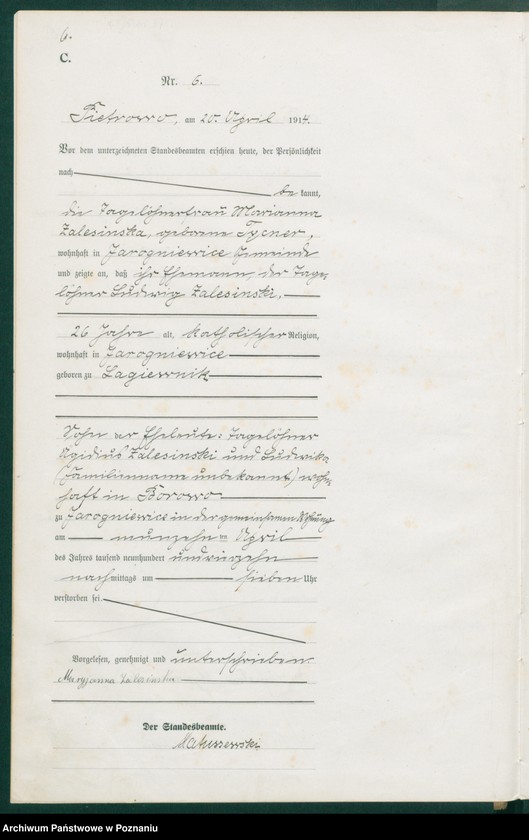 6.
C.
Nr. 6.
Pietrowo, am 20. April 1914.
Vor dem unterzeichneten Standesbeamten erschien heute, der Persönlichkeit
nach
be kannt,
die Tagelöhnerfrau Marianna
Zalesinska, geborene Tycner,
wohnhaft in Jarogniewice Gemeinde
und zeigte an, daß ihr Ehemann, der Tage-
löhner Ludwig Zalesinski,
26 Jahre alt, katholischer Religion,
wohnhaft in Jarogniewice
geboren zu Lagiewnik
Sohn der Eheleute: Tagelöhner
Zalesinski und Ludwika
(Familienname unbekannt) wohn-
haft in Borowo
zu Jarogniewice in der gemeinsamen Wohnung
am neunzehn ten April
des Jahres tausend neunhundert undvierzehn
nachmittags um sieben Uhr
verstorben sei.
Vorgelesen, genehmigt und unterschrieben
Maryjanna Zalesinska
Der Standesbeamte.
Matuszewski
Archiwum Państwowe w Poznaniu